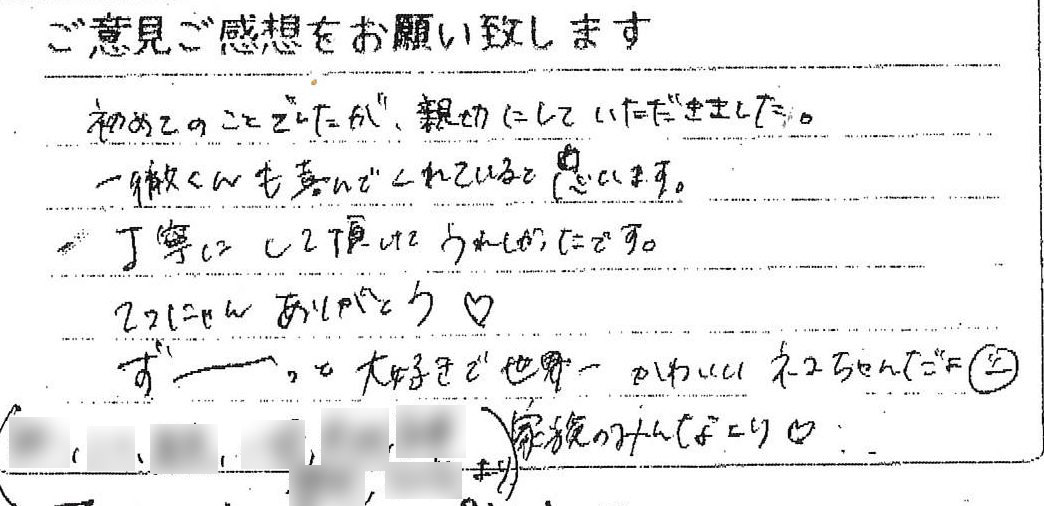 ご意見ご感想をお願い致します
初めてのことでしたが、親切にしていただきました。
一徹くんも喜んでくれていると思います。
丁寧にして頂けてうれしかったです。
てつにゃん ありがとう♡
ず――っと大好きで世界一 かわいい ネコちゃんだよ
家族のみんなより♡
より